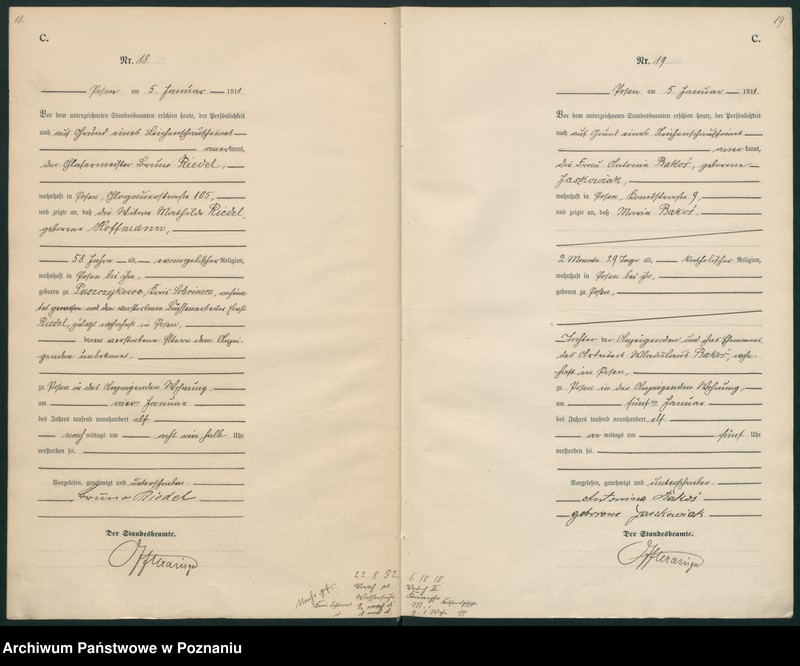 18.
C.
Nr. 18.
Posen am 5. Januar 1911
Vor dem unterzeichneten Standesbeamten erschien heute, der Persönlichkeit
nach auf Grund eines Leichenschauscheines
anerkannt,
der Glasermeister Bruno Riedel,
wohnhaft in Posen, Glogauerstraße 105,
und zeigte an, daß die Witwe Mathilde Riedel,
geborene Hoffmann,
58 Jahre alt, evangelischer Religion,
wohnhaft in Posen bei ihm,
geboren zu Puszczykowo, Kreis Schrimm, verheira-
tet gewesen mit dem verstorbenen
Riedel, zuletzt wohnhaft in Posen,
verstorbene Eltern dem Anzei-
genden unbekannt
zu Posen in des Anzeigenden Wohnung
am vier Januar
des Jahres tausend neunhundert elf
nach mittags um acht ein halb Uhr
verstorben sei.
Vorgelesen, genehmigt und unterschrieben
Bruno Riedel
Der Standesbeamte.
22 8 52
19.
C.
Nr. 19
Posen am 5. Januar 1911.
Vor dem unterzeichneten Standesbeamten erschien heute, der Persönlichkeit
nach auf Grund eines Leichenschauscheines
anerkannt,
die Frau Antonie Bakoś, geborene
Jaskowiak,
wohnhaft in Posen, 9,
und zeigte an, daß Maria Bakoś,
2 Monate 29 Tage alt, katholischer Religion,
wohnhaft in Posen bei ihr,
geboren zu Posen,
Tochter der Anzeigenden und ihres Ehemannes,
des Arbeiters Wladislaus Bakoś, wohn-
haft in Posen,
zu Posen in der Anzeigenden Wohnung,
am fünf Januar
des Jahres tausend neunhundert elf
vor mittags um fünf Uhr
verstorben sei.
Vorgelesen, genehmigt und unterschrieben
Antonina Bakoś
geborene Jaszkowiak
Der Standesbeamte.
6 10 10
Archiwum Państwowe w Poznaniu